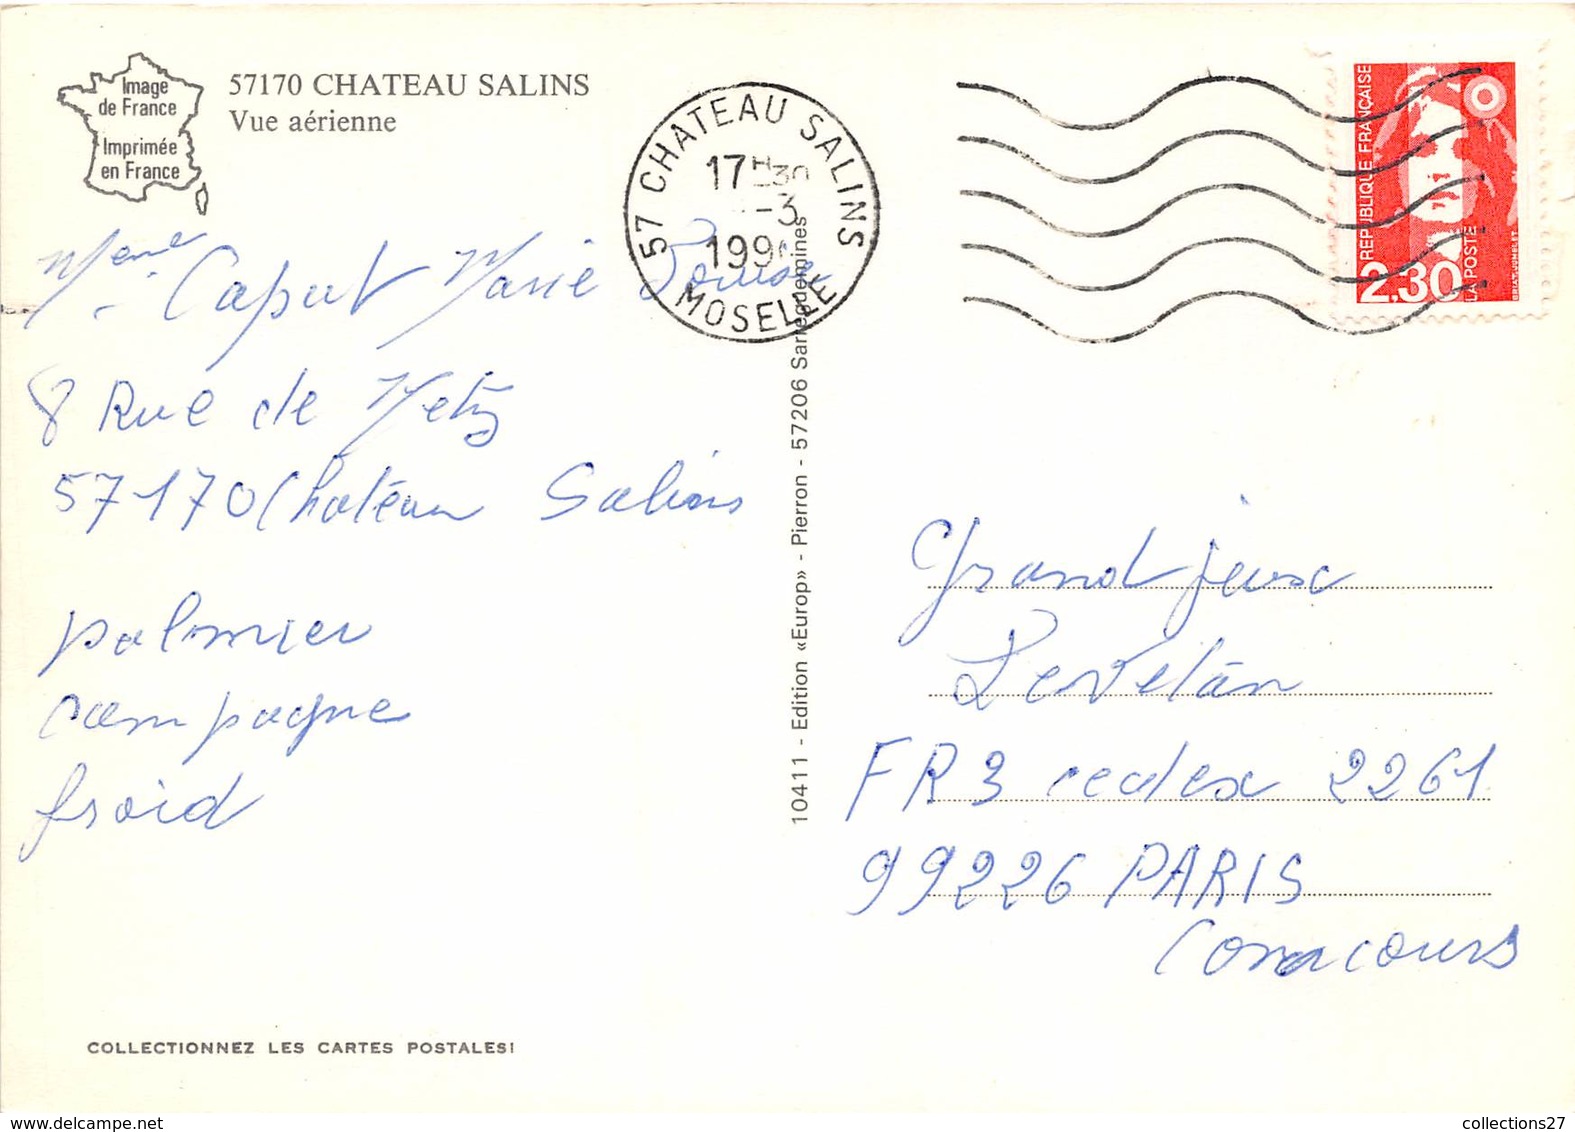 Image
de France
Imprimée
en France
57170 CHATEAU SALINS
Vue aérienne
57 CHATEAU SALINS
17H30
-3
199
MOSELLE
REPUBLIQUE FRANÇAISE
2,30
LA POSTE
BRIAT-JUMELET
Mme Caput Marie Louise
8 Rue de Metz
57170 Chatéau Salins
palmier
campagne
froid
10411 - Edition «Europ» - Pierron - 57206 Sarreguemines
Grand jeux
FR3 cedex 2261
99226 PARIS
Concours
COLLECTIONNEZ LES CARTES POSTALES!
collections27